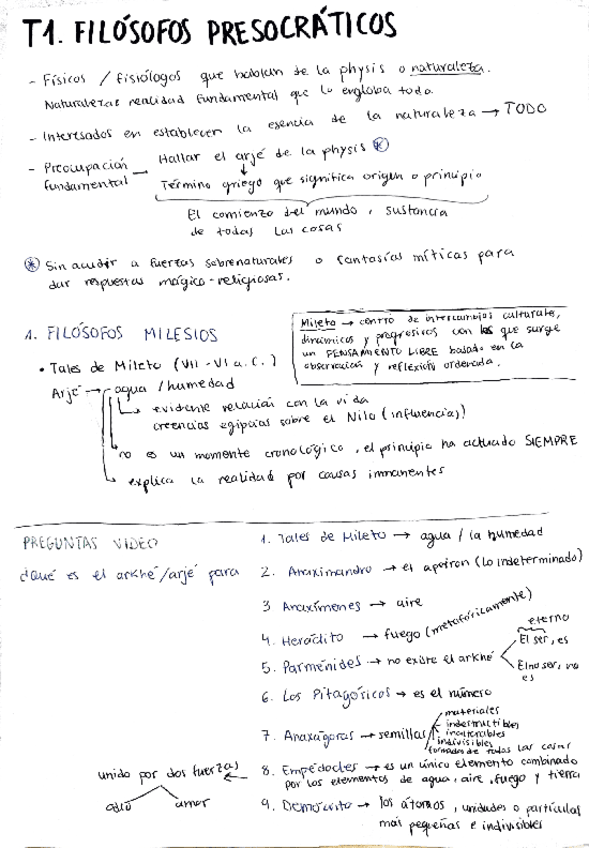 T1. FILÓSOFOS PRESOCRÁTICOS
- Físicos / fisiólogos que hablan de la physis o naturaleza.
Naturaleza = realidad fundamental que lo engloba todo.
- Interesados en establecer la esencia de la naturaleza → TODO
- Preocupación fundamental — Hallar el arjé de la physis ⊛
↓
Término griego que significa origen o principio
El comienzo del mundo, sustancia
de todas las cosas
⊛ Sin acudir a fuerzas sobrenaturales o fantasías míticas para
dar respuestas mágico-religiosas.
1. FILÓSOFOS MILESIOS
Mileto → centro de intercambios culturale,
dinámicos y progresivos con los que surge
un PENSAMIENTO LIBRE basado en la
observación y reflexión ordenada.
• Tales de Mileto (VII - VI a.C.)
Arjé → agua / humedad
→ evidente relación con la vida
creencias egipcias sobre el Nilo (influencia)
no es un momento cronológico, el principio ha actuado SIEMPRE
→ explica la realidad por causas inmanentes
PREGUNTAS VIDEO
¿Qué es el arkhé/arjé para
1. Tales de Mileto → agua / la humedad
2. Anaximandro → el apeiron (lo indeterminado)
3 Anaxímenes → aire
4. Heráclito → fuego (metafóricamente)
5. Parménides → no existe el arkhé
eterno
El ser, es
El no ser, no
es
6. Los Pitagóricos → es el número
7. Anaxágoras → semillas
materiales
indestructibles
indivisibles
formadas de todas las cosas
8. Empédocles → es un único elemento combinado
por los elementos de agua, aire, fuego y tierra
unido por dos fuerzas
odio amor
9. Demócrito → los átomos, unidades o partículas
más pequeñas e indivisibles